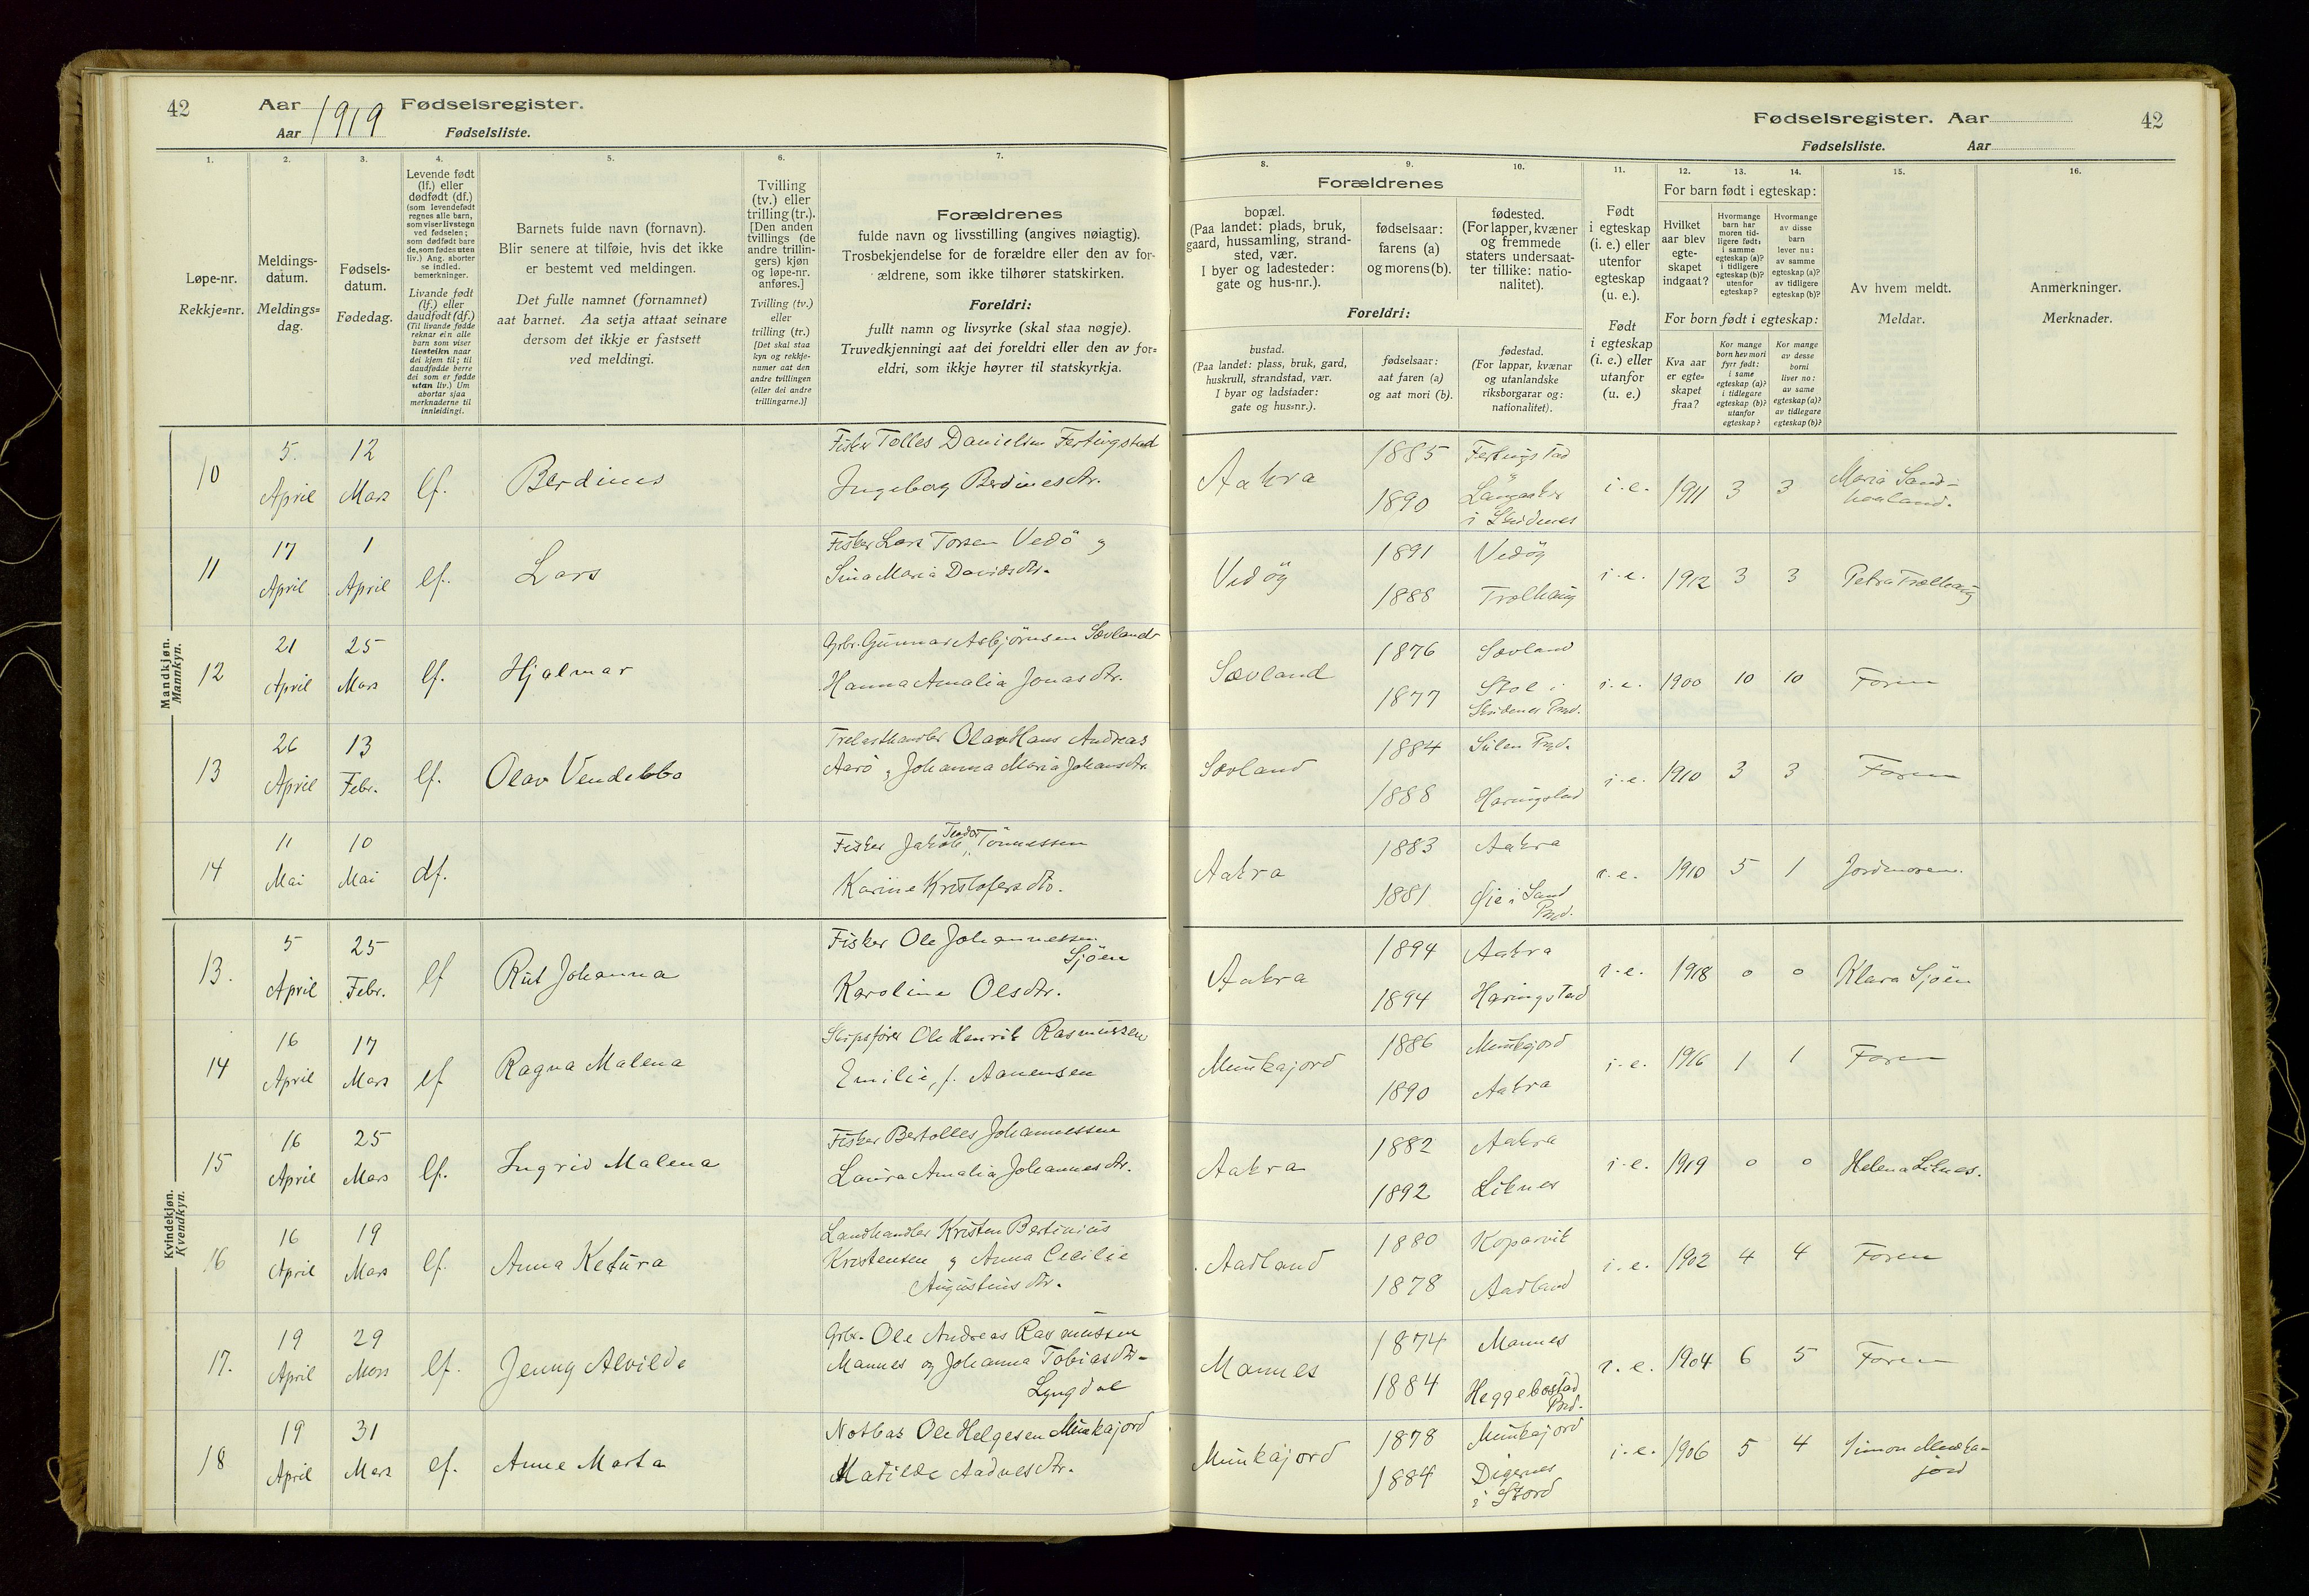 42 Aar 1919 Fødselsregister.
Aar Fødselsliste.
Fødselsregister. Aar 42
Fødselsliste. Aar
1. 2. 3. 4. 5. 6. 7. 8. 9. 10. 11. 12. 13. 14. 15. 16.
Løpe-nr.
Rekkje=nr.
Meldings-
datum.
Meldings=
dag.
Fødsels-
datum.
Fødedag.
Levende født
(lf.) eller
dødfødt (df.)
(som levendefødt
regnes alle barn,
som viser livstegn
ved fødselen;
som dødfødt bare
de, som fødes uten
liv.) Ang. aborter
se indled.
bemerkninger.
Livande født
(lf.) eller
daudfødt (df.)
(Til livande fødde
reknar ein alle
barn som viser
livsteikn naar
dei kjem til; til
daudfødde berre
dei som er fødde
utan liv.) Um
abortar sjaa
merknaderne til
innleidingi.
Barnets fulde navn (fornavn).
Blir senere at tilføie, hvis det ikke
er bestemt ved meldingen.
Det fulle namnet (fornamnet)
aat barnet. Aa setja attaat seinare
dersom det ikkje er fastsett
ved meldingi.
Tvilling
(tv.) eller
trilling (tr.).
[Den anden
tvillings (de
andre trillin-
gers) kjøn
og løpe-nr.
anføres.]
Tvilling (tv.)
eller
trilling (tr.)
[Det skal staa
kyn og rekkje-
numer aat den
andre tvillingen
(eller dei andre
trillingarne.)]
Forældrenes
fulde navn og livsstilling (angives nøiagtig).
Trosbekjendelse for de forældre eller den av for-
ældrene, som ikke tilhører statskirken.
Foreldri:
fullt namn og livsyrke (skal staa nøgje).
Truvedkjenningi aat dei foreldri eller den av for=
eldri, som ikkje høyrer til statskyrkja.
Forældrenes
bopæl.
(Paa landet: plads, bruk,
gaard, hussamling, strand-
sted, vær.
I byer og ladesteder:
gate og hus-nr.).
fødselsaar:
farens (a)
og morens (b).
fødested.
(For lapper, kvæner
og fremmede
staters undersaat-
ter tillike: natio-
nalitet).
Foreldri:
bustad.
(Paa landet: plass, bruk, gard,
huskrull, strandstad, vær.
I byar og ladstader:
gate og hus=nr.).
fødselsaar:
aat faren (a)
og aat mori (b).
fødestad.
(For lappar, kvænar
og utanlandske
riksborgarar og:
nationalitet).
Født
i egteskap
(i. e.) eller
utenfor
egteskap
(u. e.).
Født
i egteskap
(i. e.) eller
utanfor
(u. e.)
For barn født i egteskap:
Hvilket
aar blev
egte-
skapet
indgaat?
Hvormange
barn har
moren tid-
ligere født:
i samme
egteskap (a)?
i tidligere
egteskap (b)?
utenfor
egteskap?
Hvormange
av disse
barn
lever nu:
av samme
egteskap (a)?
av tidligere
egteskap (b)?
For born født i egteskap:
Kva aar
er egte=
skapet
fraa?
Kor mange
born hev mori
fyrr født:
i same
egteskap (a)?
i tidlegare
egteskap (b)?
utanfor
egteskap?
Kor mange
av desse
borni
liver no:
av same
egteskap (a)?
av tidlegare
egteskap (b)?
Av hvem meldt.
Meldar.
Anmerkninger.
Merknader.
Mandkjøn.
Mannkyn.
10 5. April 12 Mars lf. Berdines Fisker Tolles Danielsen Ferkingstad
Ingeborg Berdinesdtr. Aakra 1885 Ferkingstad
1890 Langaaker i Skudenes i. e. 1911 3 3 Maria Sand-
haaland.
11 17 April 1 April lf. Lars Fisker Lars Torsen Vedö og
Sina Maria Davidsdtr. Vedöy 1891 Vedöy
1888 Trælhaug i. e. 1912 3 3 Petra Trælhaug
12 21 April 25 Mars lf. Hjalmar Grbr. Gunnar Asbjörnsen Sævland
Hanna Amalia Jonasdtr. Sævland 1876 Sævland
1877 Stol i Skudenes Prgd. i. e. 1900 10 10 Foren
13 26 April 13 Febr. lf. Olav Vendebbo Trelasthandler Olav Hans Andreas
Aarö og Johanna Maria Johansdtr. Sævland 1884 Sulen Prgd.
1888 Haringstad i. e. 1910 3 3 Foren
14 11 Mai 10 Mai df. Fisker Jakob Teodor Tönnessen
Karine Kristofersdtr. Aakra 1883 Aakra
1881 Øie i Sand Prgd. i. e. 1910 5 1 Jordmoren.
Kvindekjøn.
Kvendkyn.
13. 5 April 25 Febr. lf Rut Johanna Fisker Ole Johannessen
Sjöen
Karoline Olsdtr. Aakra 1894 Aakra
1894 Haringstad i. e. 1918 0 0 Klara Sjöen
14 16 April 17 Mars lf Ragna Malena Skipsfører Ole Henrik Rasmussen
Emilie, f. Aanensen Munkajord 1886 Munkajord
1890 Aakra i. e. 1916 1 1 Foren
15 16 April 25 Mars lf. Ingrid Malena Fisker Bertolles Johannessen
Laura Amalia Johannesdtr. Aakra 1882 Aakra
1892 Liknes i. e. 1919 0 0 Helena Liknes.
16 16 April 19 Mars lf. Anna Ketura Landhandler Kristen Bertinius
Kristensen og Anna Cecilie
Augustinusdtr. Aadland 1880 Kopervik
1878 Aadland i. e. 1902 4 4 Foren
17. 19 April 29 Mars lf. Jenny Alvilde Grbr. Ole Andreas Rasmussen
Mannes og Johanna Tobiasdtr.
Lyngdal Mannes 1874 Mannes
1884 Heggebostad Prgd. i. e. 1904 6 5 Foren
18 19 April 31 Mars lf. Anne Marta Notbas Ole Helgesen Munkajord
Matilde Aadnesdtr. Munkajord 1878 Munkajord
1884 Digernes i Stord i. e. 1906 5 4 Simon Munka-
jord